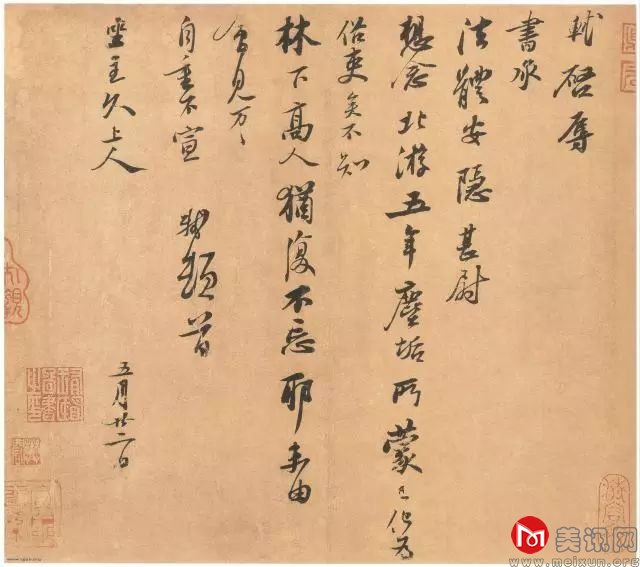 軾啓辱
書承
法體安隱甚尉
想念北游五年塵垢所蒙已化為
俗吏矣不知
林下高人猶復不忘耶未由
會見万々
自重不宣 軾頓首
坐主久上人
五月廿二日
美讯网
www.meixun.org